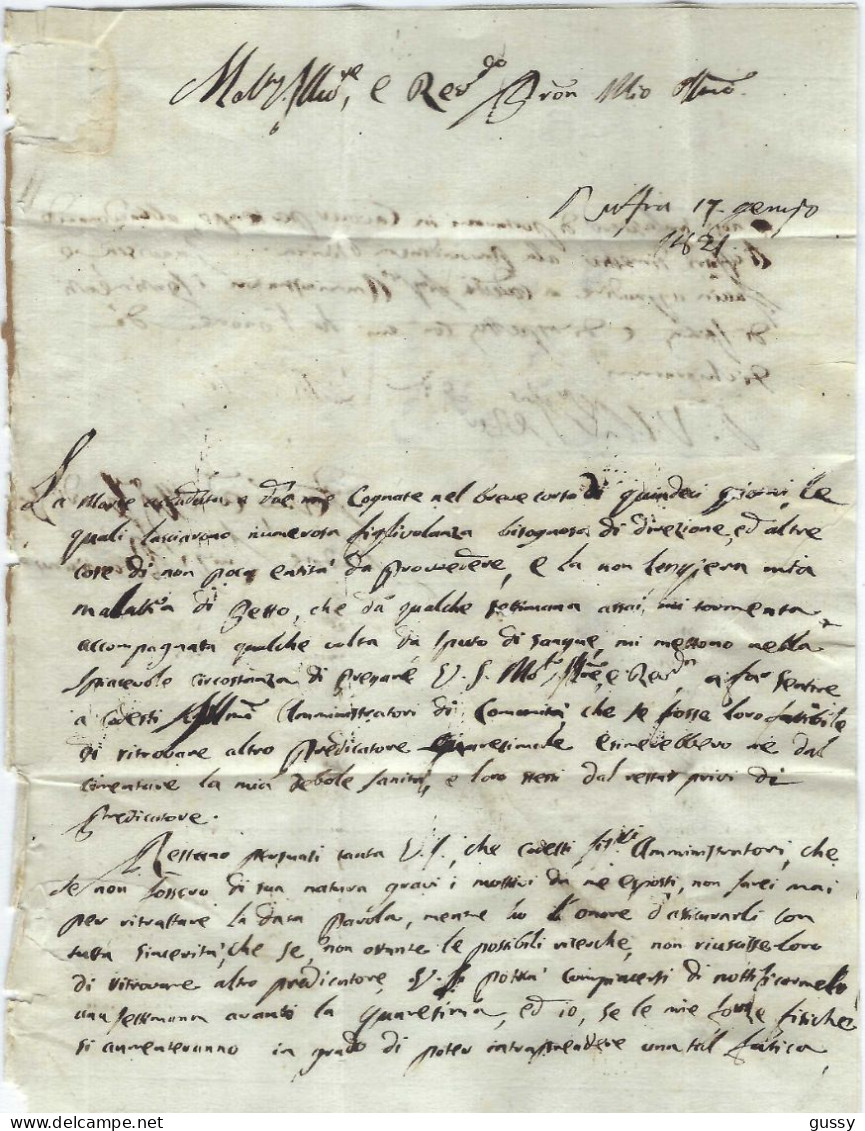 Molt. Ill.re, e Rev.do Pron Mio Oss.mo
17. genajo
1821
La Morte accaduta a due mie Cognate nel breve corso di quindeci giorni, le
quali lasciarono numerosa figlivolanza bisognosa di direzione, ed altre
cose di non poca entità da provvedere, e la non leggiera mia
malattia di Petto, che da qualche settimana assai mi tormenta
accompagnata qualche volta da sputo di sangue, mi mettono nella
spiacevole circostanza di pregare V. S. Mol. Ill.re, e Rev.da, a far sentire
a codesti Ill.mi Amministratori di Comunità, che se fosse loro fattibile
di ritrovare altro Predicatore Quaresimale esimerebbero me dal
cimentare la mia debole sanità, e loro stessi dal restar privi di
Predicatore.
Resterno persuasi tanta V. S., che codesti Sig.ri Amministratori, che
se non fossero di sua natura gravi i mottivi da me esposti, non sarei mai
per ritrattare la data parola, mentre ho l'onore d'assicurarli con
tutta sincerità, che se, non ostante le possibili ricerche, non riuscisse loro
di ritrovare altro predicatore, V. S. potrà compiacersi di nottificarmelo
una settimana avanti la quaresima, ed io, se le mie forze fisiche
si aumenteranno in grado di poter intraprendere una tal fatica
gussy